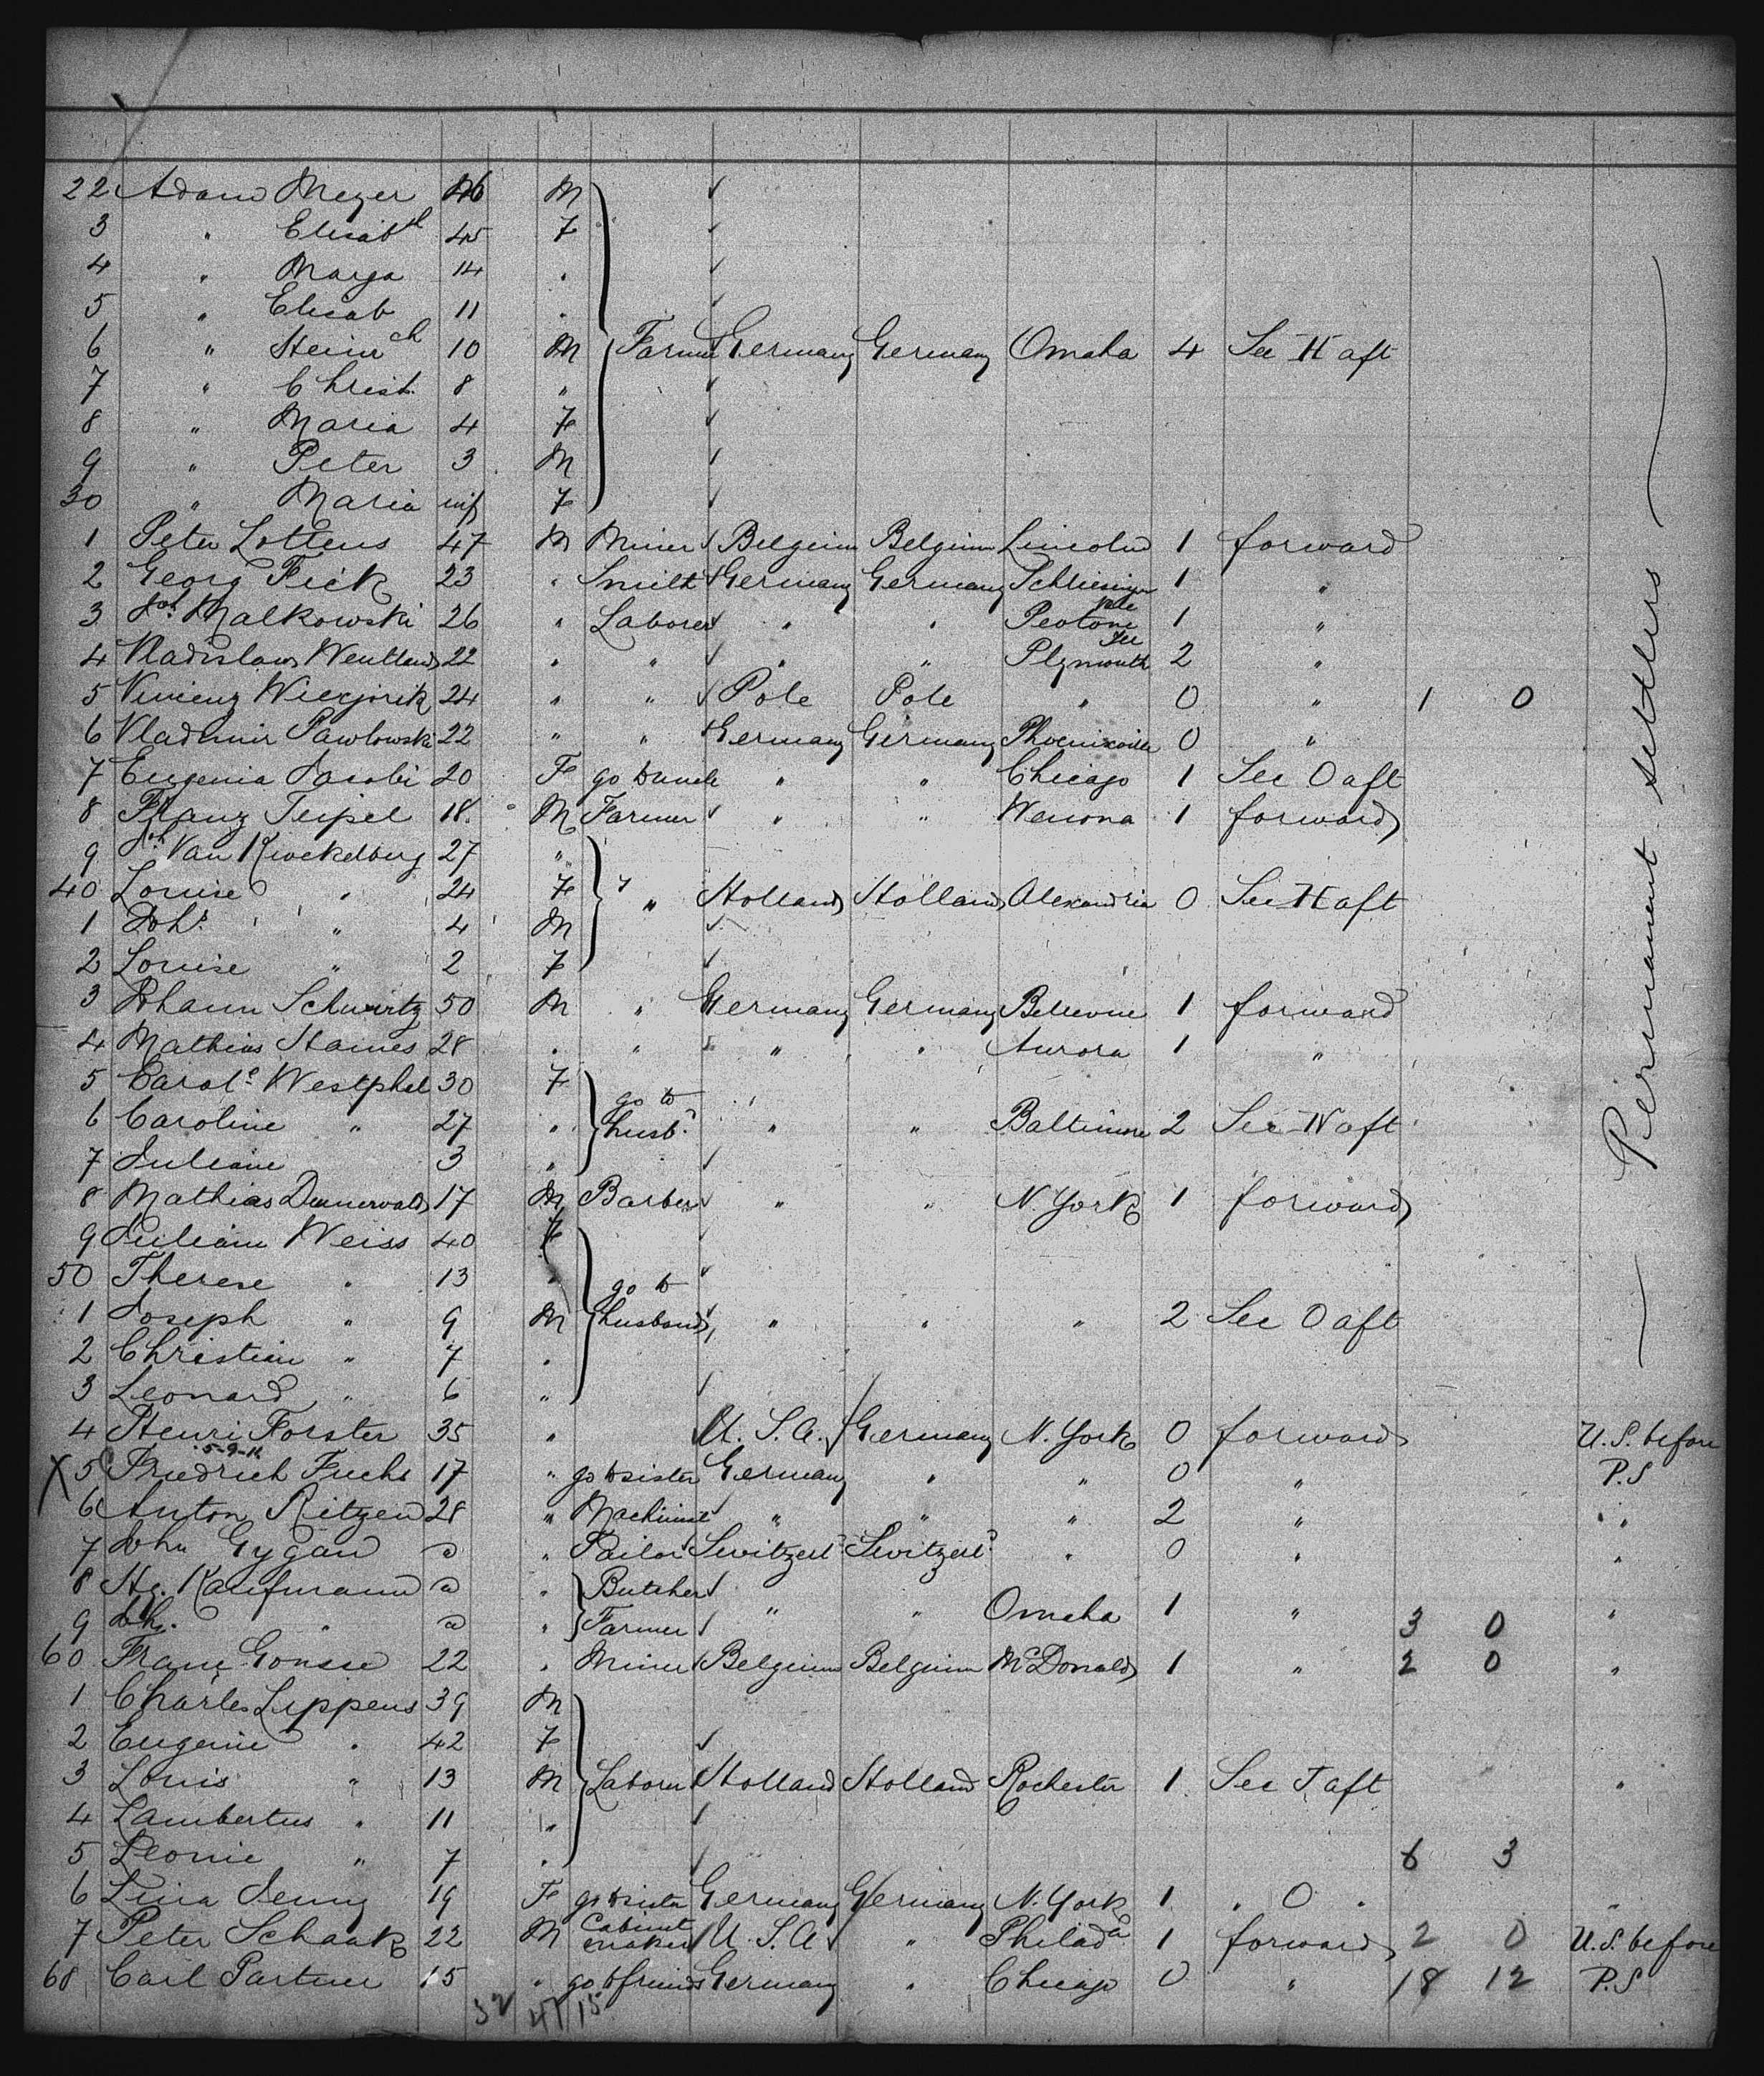 22 Adam Meyer 46 M
3 " Elisabth 45 F
4 " Marga 14 "
5 " Elisab 11 "
6 " Heinrch 10 M Farmer Germany Germany Omaha 4 Sec H aft
7 " Christ. 8 "
8 " Maria 4 F
9 " Peter 3 M
30 " Maria inf F
1 Peter Lottens 47 M Miner Belgium Belgium Lincoln 1 forward
2 Georg Fick 23 " Smith Germany Germany 1 "
3 Joh. Malkowski 26 " Laborer " " Peotone 1 "
4 Vladislaw Wentland 22 " " " " Plymouth 2 "
5 24 " " Pole Pole " 0 " 1 0
6 Vladimir Pawlowski 22 " " Germany Germany Phoenixville 0 "
7 Eugenia Jacobi 20 F go to uncle " " Chicago 1 Sec O aft
8 Franz Teipel 18 M Farmer " " Wenona 1 forward
9 Joh Van 27 "
40 Louise " 24 F " Holland Holland Alexandria 0 Sec H aft
1 Joh. " 4 M
2 Louise " 2 F
3 Johann Schwartz 50 M " Germany Germany Bellevue 1 forward
4 Mathias Hames 28 " " " " Aurora 1 "
5 Carole Westphal 30 F
6 Caroline " 27 " go to husbd " " Baltimore 2 Sec W aft
7 Juliane 3 "
8 Mathias 17 M Barber " " N. York 1 forward
9 Juliane Weiss 40 F
50 Therese " 13 "
1 Joseph " 9 M go to husband " " " 2 Sec O aft
2 Christian " 7 "
3 Leonard " 6 "
4 Henri Forster 35 " U. S. A. Germany N. York 0 forward U.S. before
5-9-
X 5 Friedrich Fuchs 17 " go to sister Germany " " 0 " P.S
6 Anton Ritzen 28 " Machinist " " " 2 " "
7 John Gygan a " Tailor Switzerld Switzerld " 0 " "
8 Hg. Kaufmann a " Butcher " " Omaha 1 " "
9 Jh. " a " Farmer 3 0
60 Franz Gousse 22 " Miner Belgium Belgium McDonald 1 " 2 0 "
1 Charles Lippens 39 M
2 Eugenie " 42 F
3 Louis " 13 M Laborer Holland Holland Rochester 1 Sec J aft "
4 Lambertus " 11 "
5 Leonie " 7 " 6 3
6 Lina Jenny 19 F go to sister Germany Germany N. York 1 " O " "
7 Peter Schaak 22 M Cabinet maker U. S. A " Philada 1 forward 2 0 U.S. before
68 Carl Partner 15 " go to friends Germany " Chicago 0 " 18 12 P.S
32 47/15
Permanent settlers